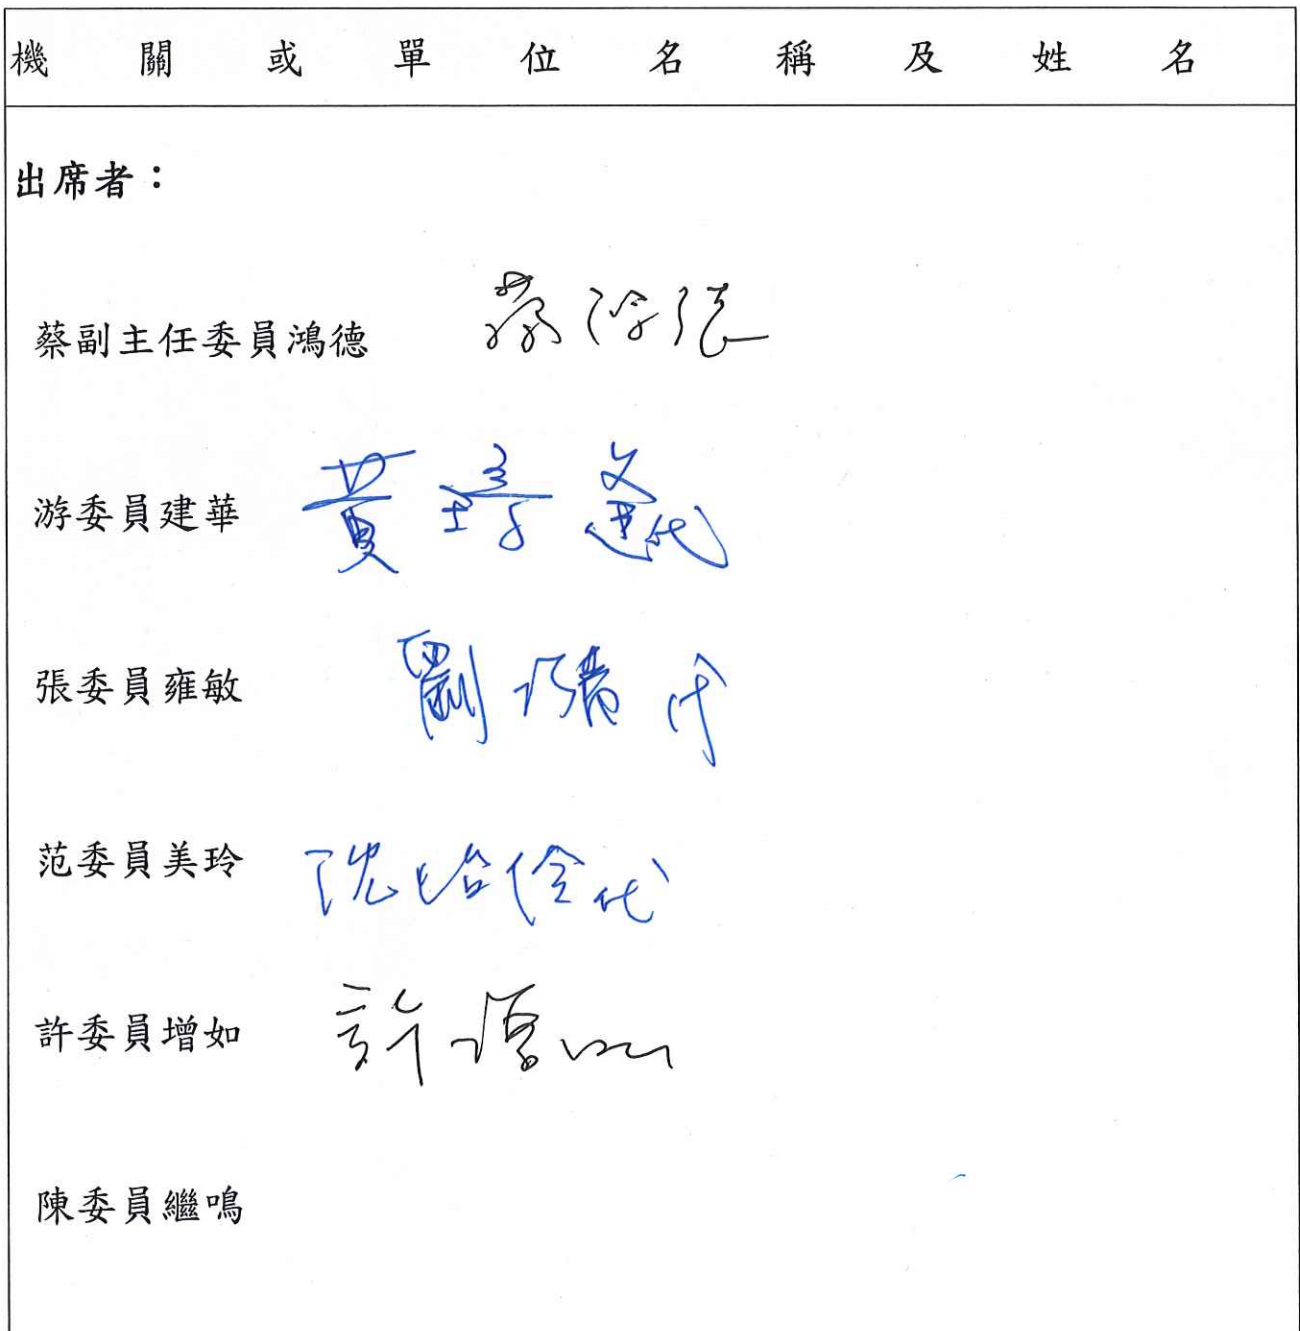 機關或單位名稱及姓名
出席者：
蔡副主任委員鴻德 蔡鴻德
游委員建華 黃 代
張委員雍敏 劉 代
范委員美玲 沈 代
許委員增如 許增如
陳委員繼鳴